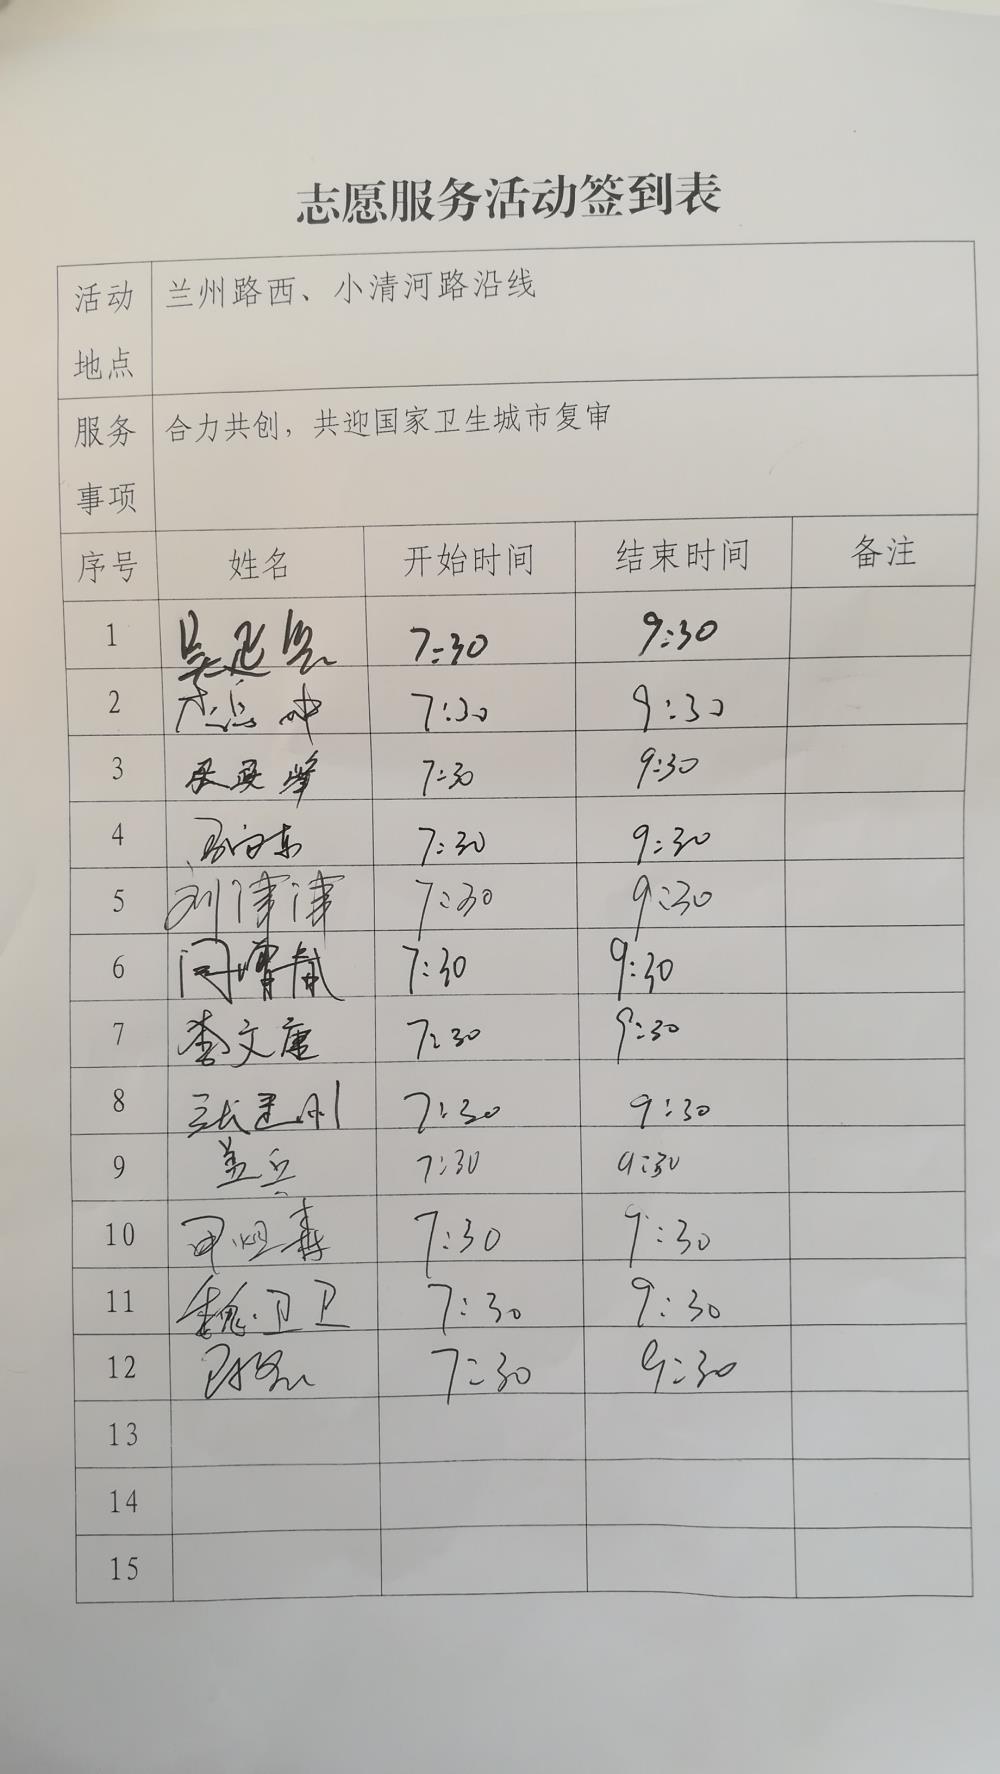 志愿服务活动签到表
活动地点 兰州路西、小清河路沿线
服务事项 合力共创，共迎国家卫生城市复审
序号 姓名 开始时间 结束时间 备注
1 7:30 9:30
2 7:30 9:30
3 7:30 9:30
4 7:30 9:30
5 刘津津 7:30 9:30
6 7:30 9:30
7 李文康 7:30 9:30
8 张建刚 7:30 9:30
9 7:30 9:30
10 7:30 9:30
11 魏卫卫 7:30 9:30
12 7:30 9:30
13
14
15